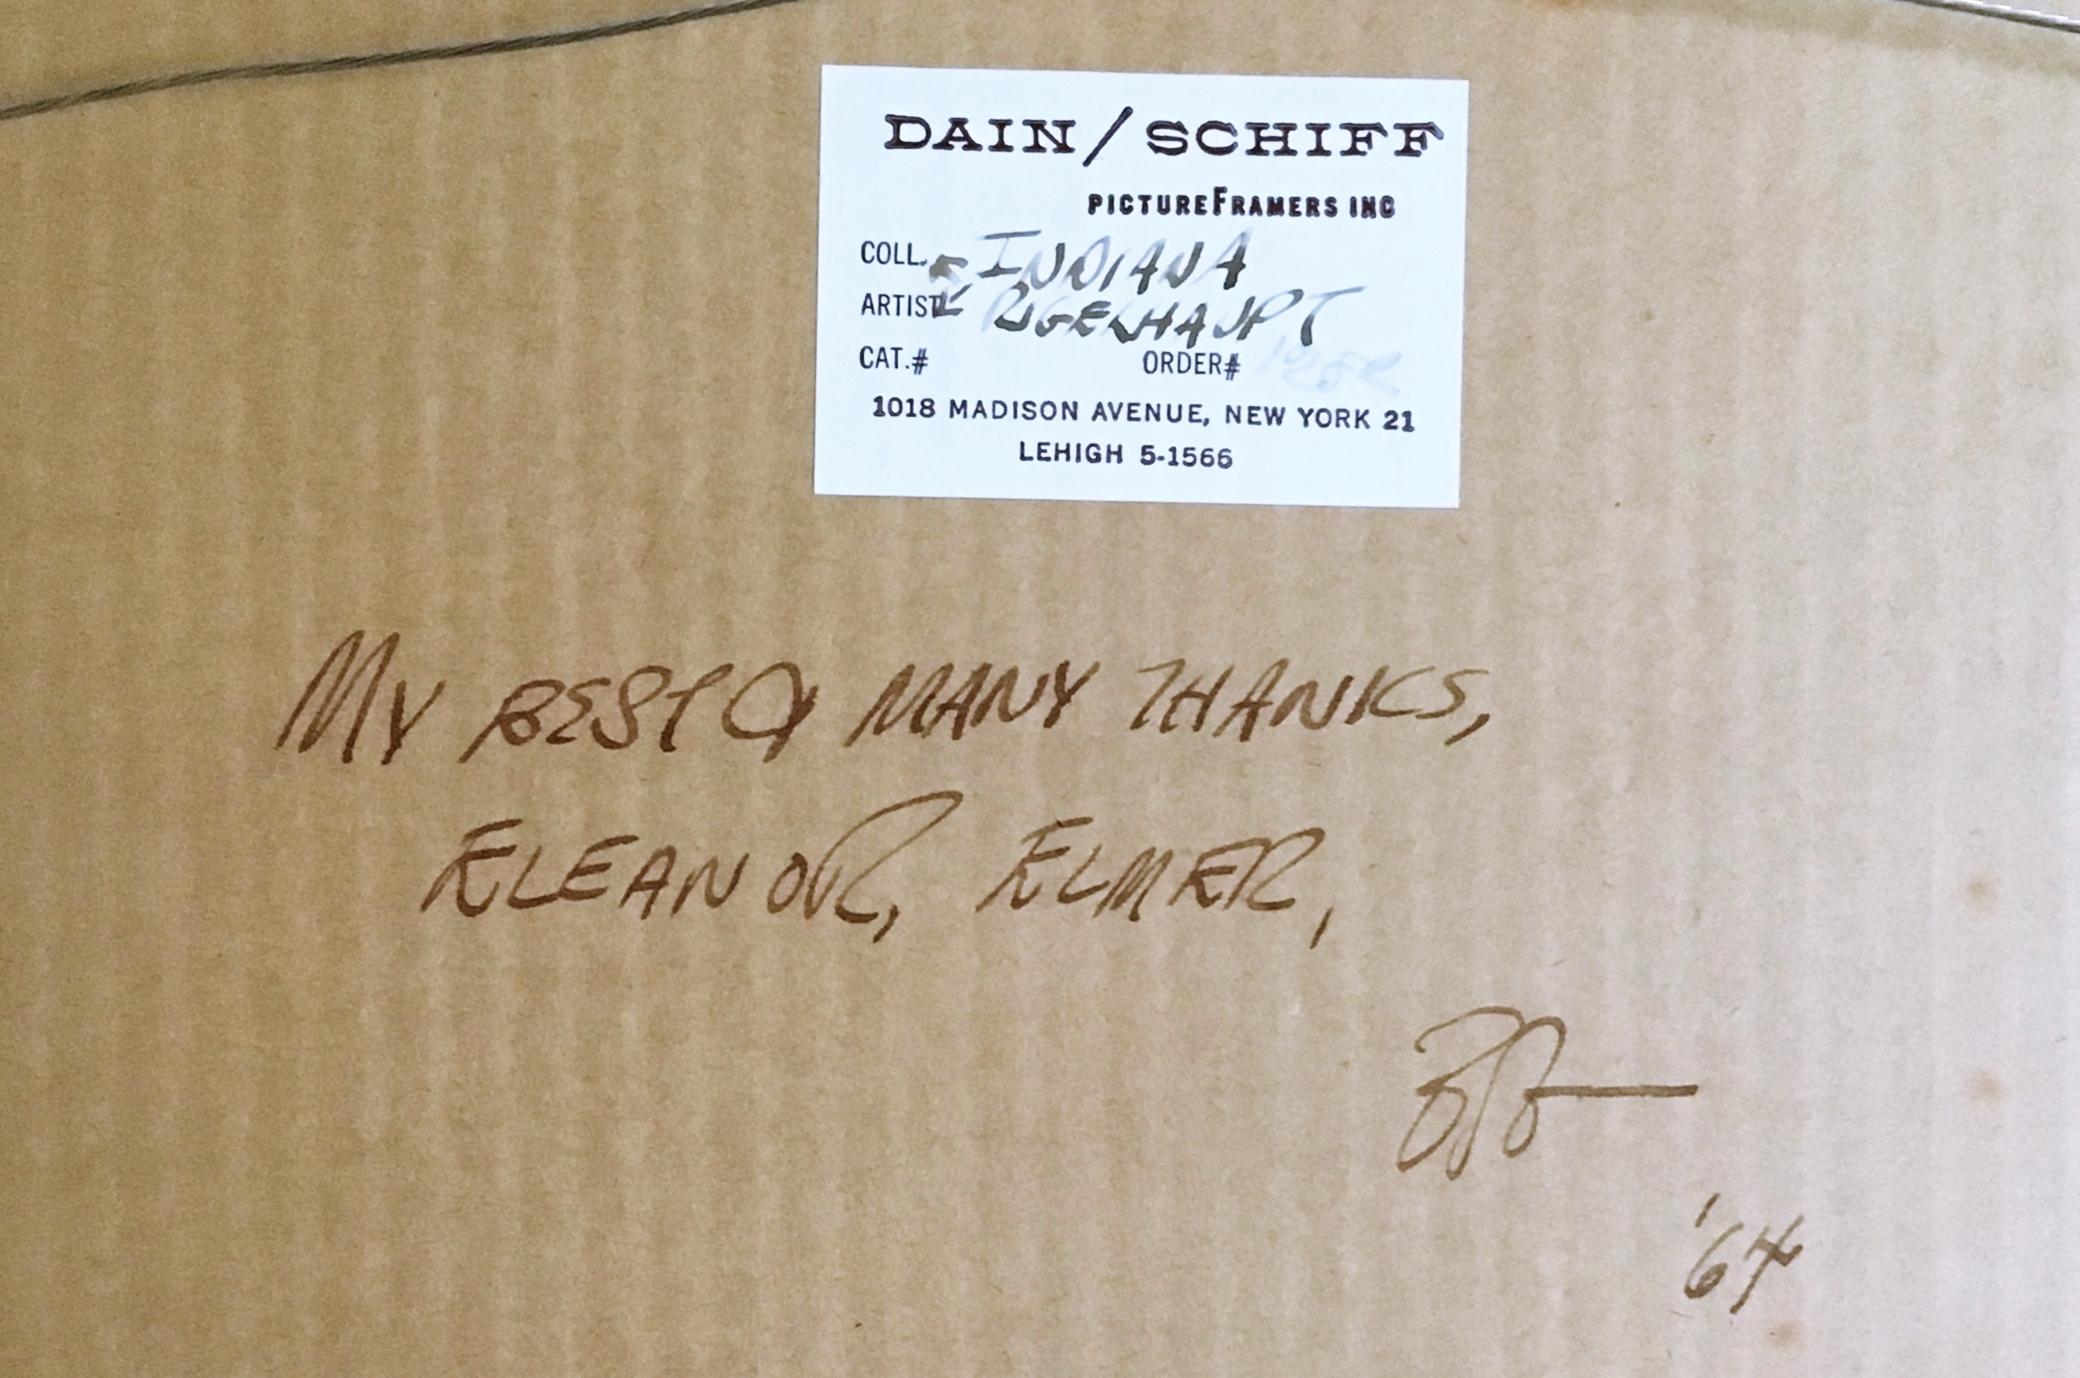 DAIN/SCHIFF
PICTUREFRAMERS INC
COLL. INDIANA
ARTIST RIGELHAUPT
CAT.# ORDER#
1018 MADISON AVENUE, NEW YORK 21
LEHIGH 5-1566
MY BEST & MANY THANKS,
ELEANOR, ELMER,
'64